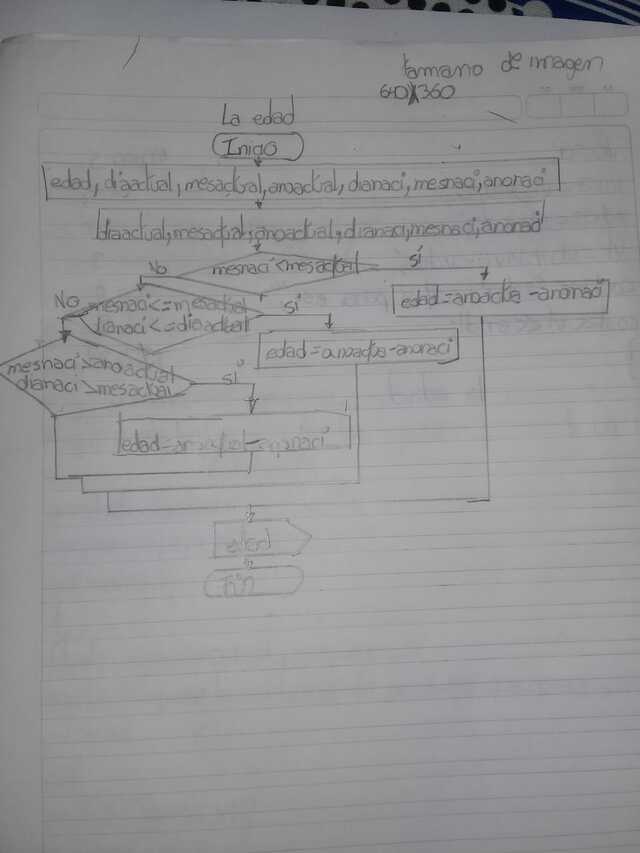 tamano de imagen
640X360
La edad
Inicio
edad, diaactual, mesactual, anoactual, dianaci, mesnaci, anonaci
diaactual, mesactual, anoactual, dianaci, mesnaci, anonaci
No mesnaci<mesactual sí
edad=anoactua-anonaci
No mesnaci<=mesactual sí
dianaci<=diaactual
edad=anoactua-anonaci
mesnaci>anoactual
dianaci>mesactual sí
edad=anoactual-anonaci
edad
Fin